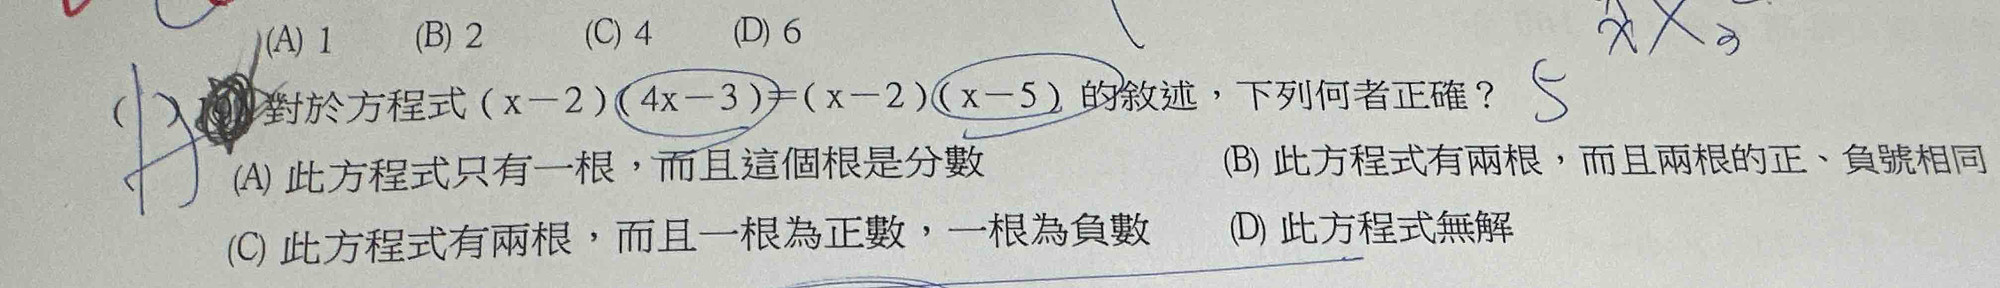 (A) 1 (B) 2 (C) 4 (D) 6
( ) 對於方程式(x－2)(4x－3)=(x－2)(x－5) 的敘述，下列何者正確？ 5
(A) 此方程式只有一根，而且這個根是分數 (B) 此方程式有兩根，而且兩根的正、負號相同
(C) 此方程式有兩根，而且一根為正數，一根為負數 (D) 此方程式無解